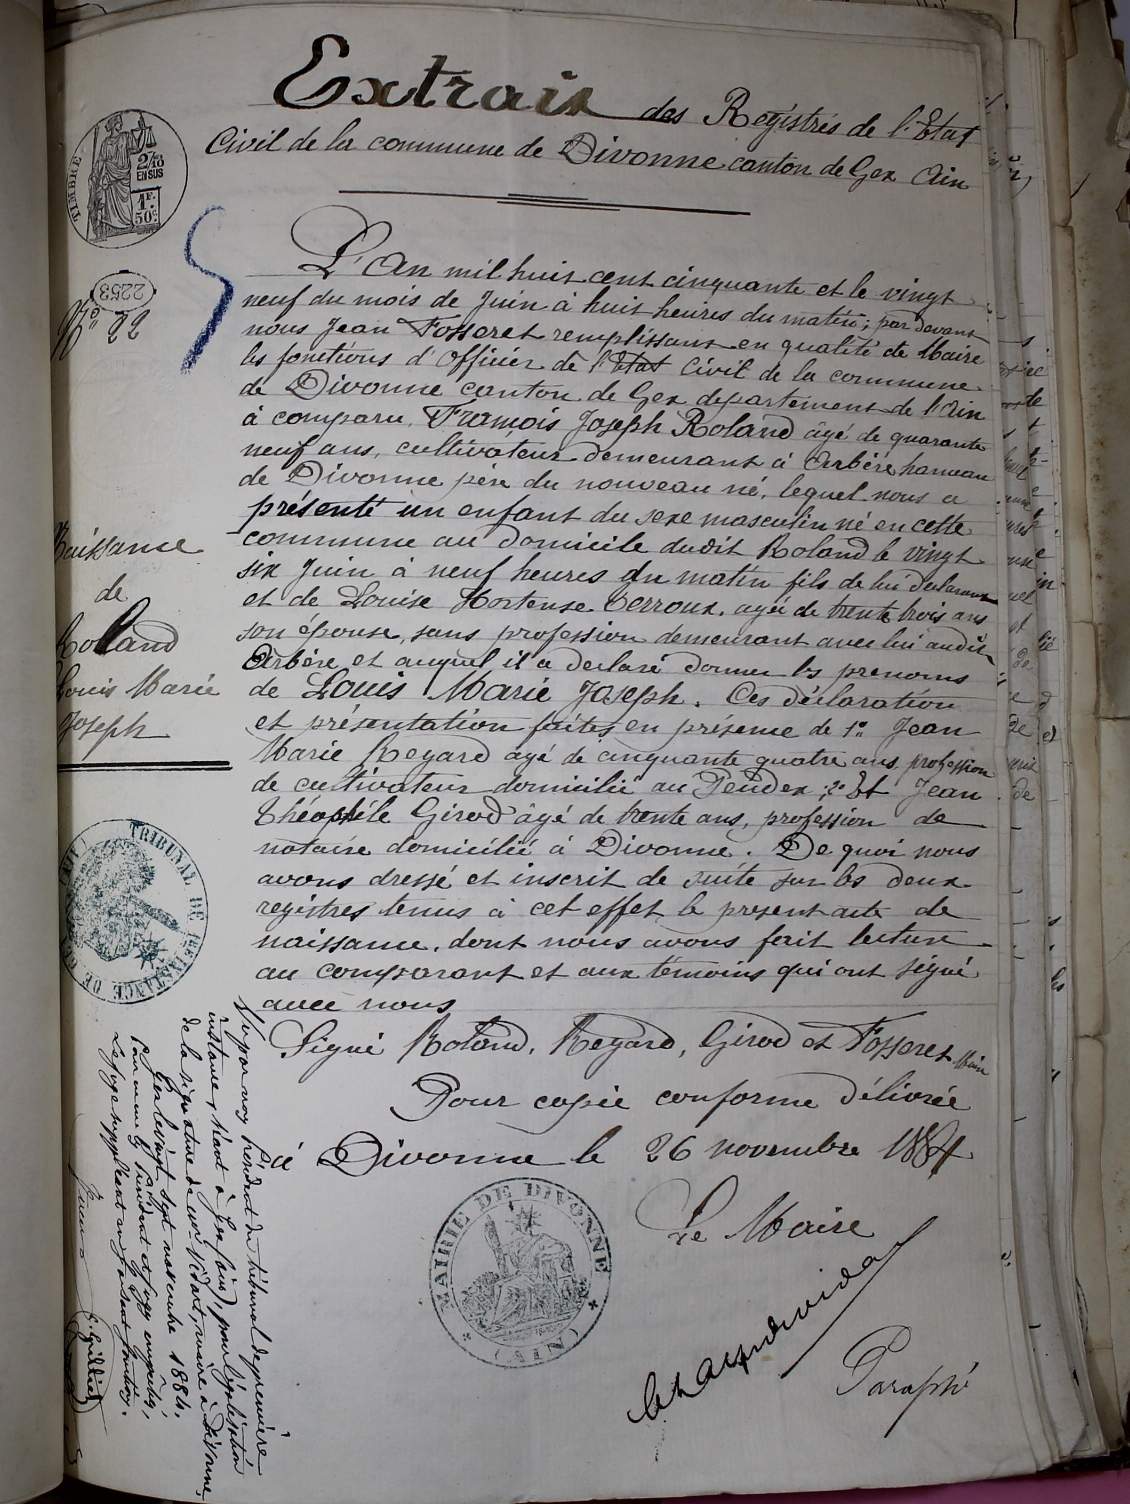 Extrait des Registres de l'Etat
Civil de la commune de Divonne canton de Gex Ain
TIMBRE
2/10
EN SUS
1F.
50C.
2253
N° 22
L'An mil huit cent cinquante et le vingt
neuf du mois de Juin à huit heures du matin; par devant
nous Jean Fosseret remplissant en qualité de Maire
les fonctions d'officier de l'Etat Civil de la commune
de Divonne canton de Gex departement de l'Ain
à comparu, François Joseph Roland âgé de quarante
neuf ans, cultivateur demeurant à Arbère hameau
de Divonne père du nouveau né, lequel nous a
présenté un enfant du sexe masculin né en cette
commune au domicile dudit Roland le vingt
six Juin à neuf heures du matin fils de lui declarant
et de Louise Hortense Terroux, agée de trente trois ans
son épouse, sans profession demeurant avec lui audit
Arbère et auquel il a declaré donner les prenoms
de Louis Marie Joseph. Ces déclaration
et présentation faites en présence de 1° Jean
Marie Regard agé de cinquante quatre ans, profession
de cultivateur domicilié au Pendex; 2° Et Jean
Théophile Girod âgé de trente ans, profession de
notaire domicilié à Divonne. De quoi nous
avons dressé et inscrit de suite sur les deux
registres tenus à cet effet le present acte de
naissance, dont nous avons fait lecture
au comparant et aux témoins qui ont signé
avec nous
Signé Roland, Regard, Girod et Fosseret Maire
Pour copie conforme délivrée
à Divonne le 26 novembre 1884
Le Maire
Paraphé
MAIRIE DE DIVONNE
(AIN)
Naissance
de
Rolland
Louis Marie
Joseph
TRIBUNAL DE 1ERE INSTANCE DE GEX (AIN)
Vu par nous Président du tribunal de première
instance, séant à Gex (Ain), pour légalisation
de la signature de Mr Vidart, maire à Divonne,
Gex le vingt sept novembre 1884.
Pour M. le Président et juge empêchés,
Le Juge suppléant en faisant fonctions.